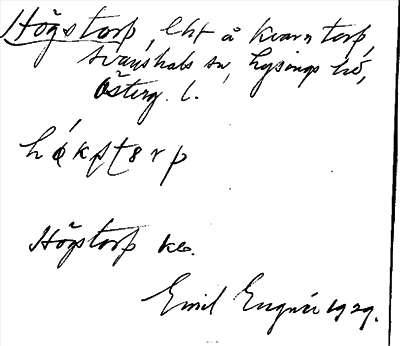 Högstorp, lht å Kvarntorp,
Svanshals sn, Lysings hd,
Österg. l.
hǿkstɵrp
Högstorp ke.
Emil Engnér 1929.